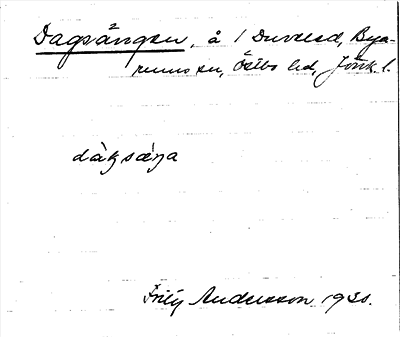 Dagsängen, å 1 Duveled, Bya-
rums sn, Östbo hd, Jönk. l.
dàgsæŋa
Frily Andersson 1930.